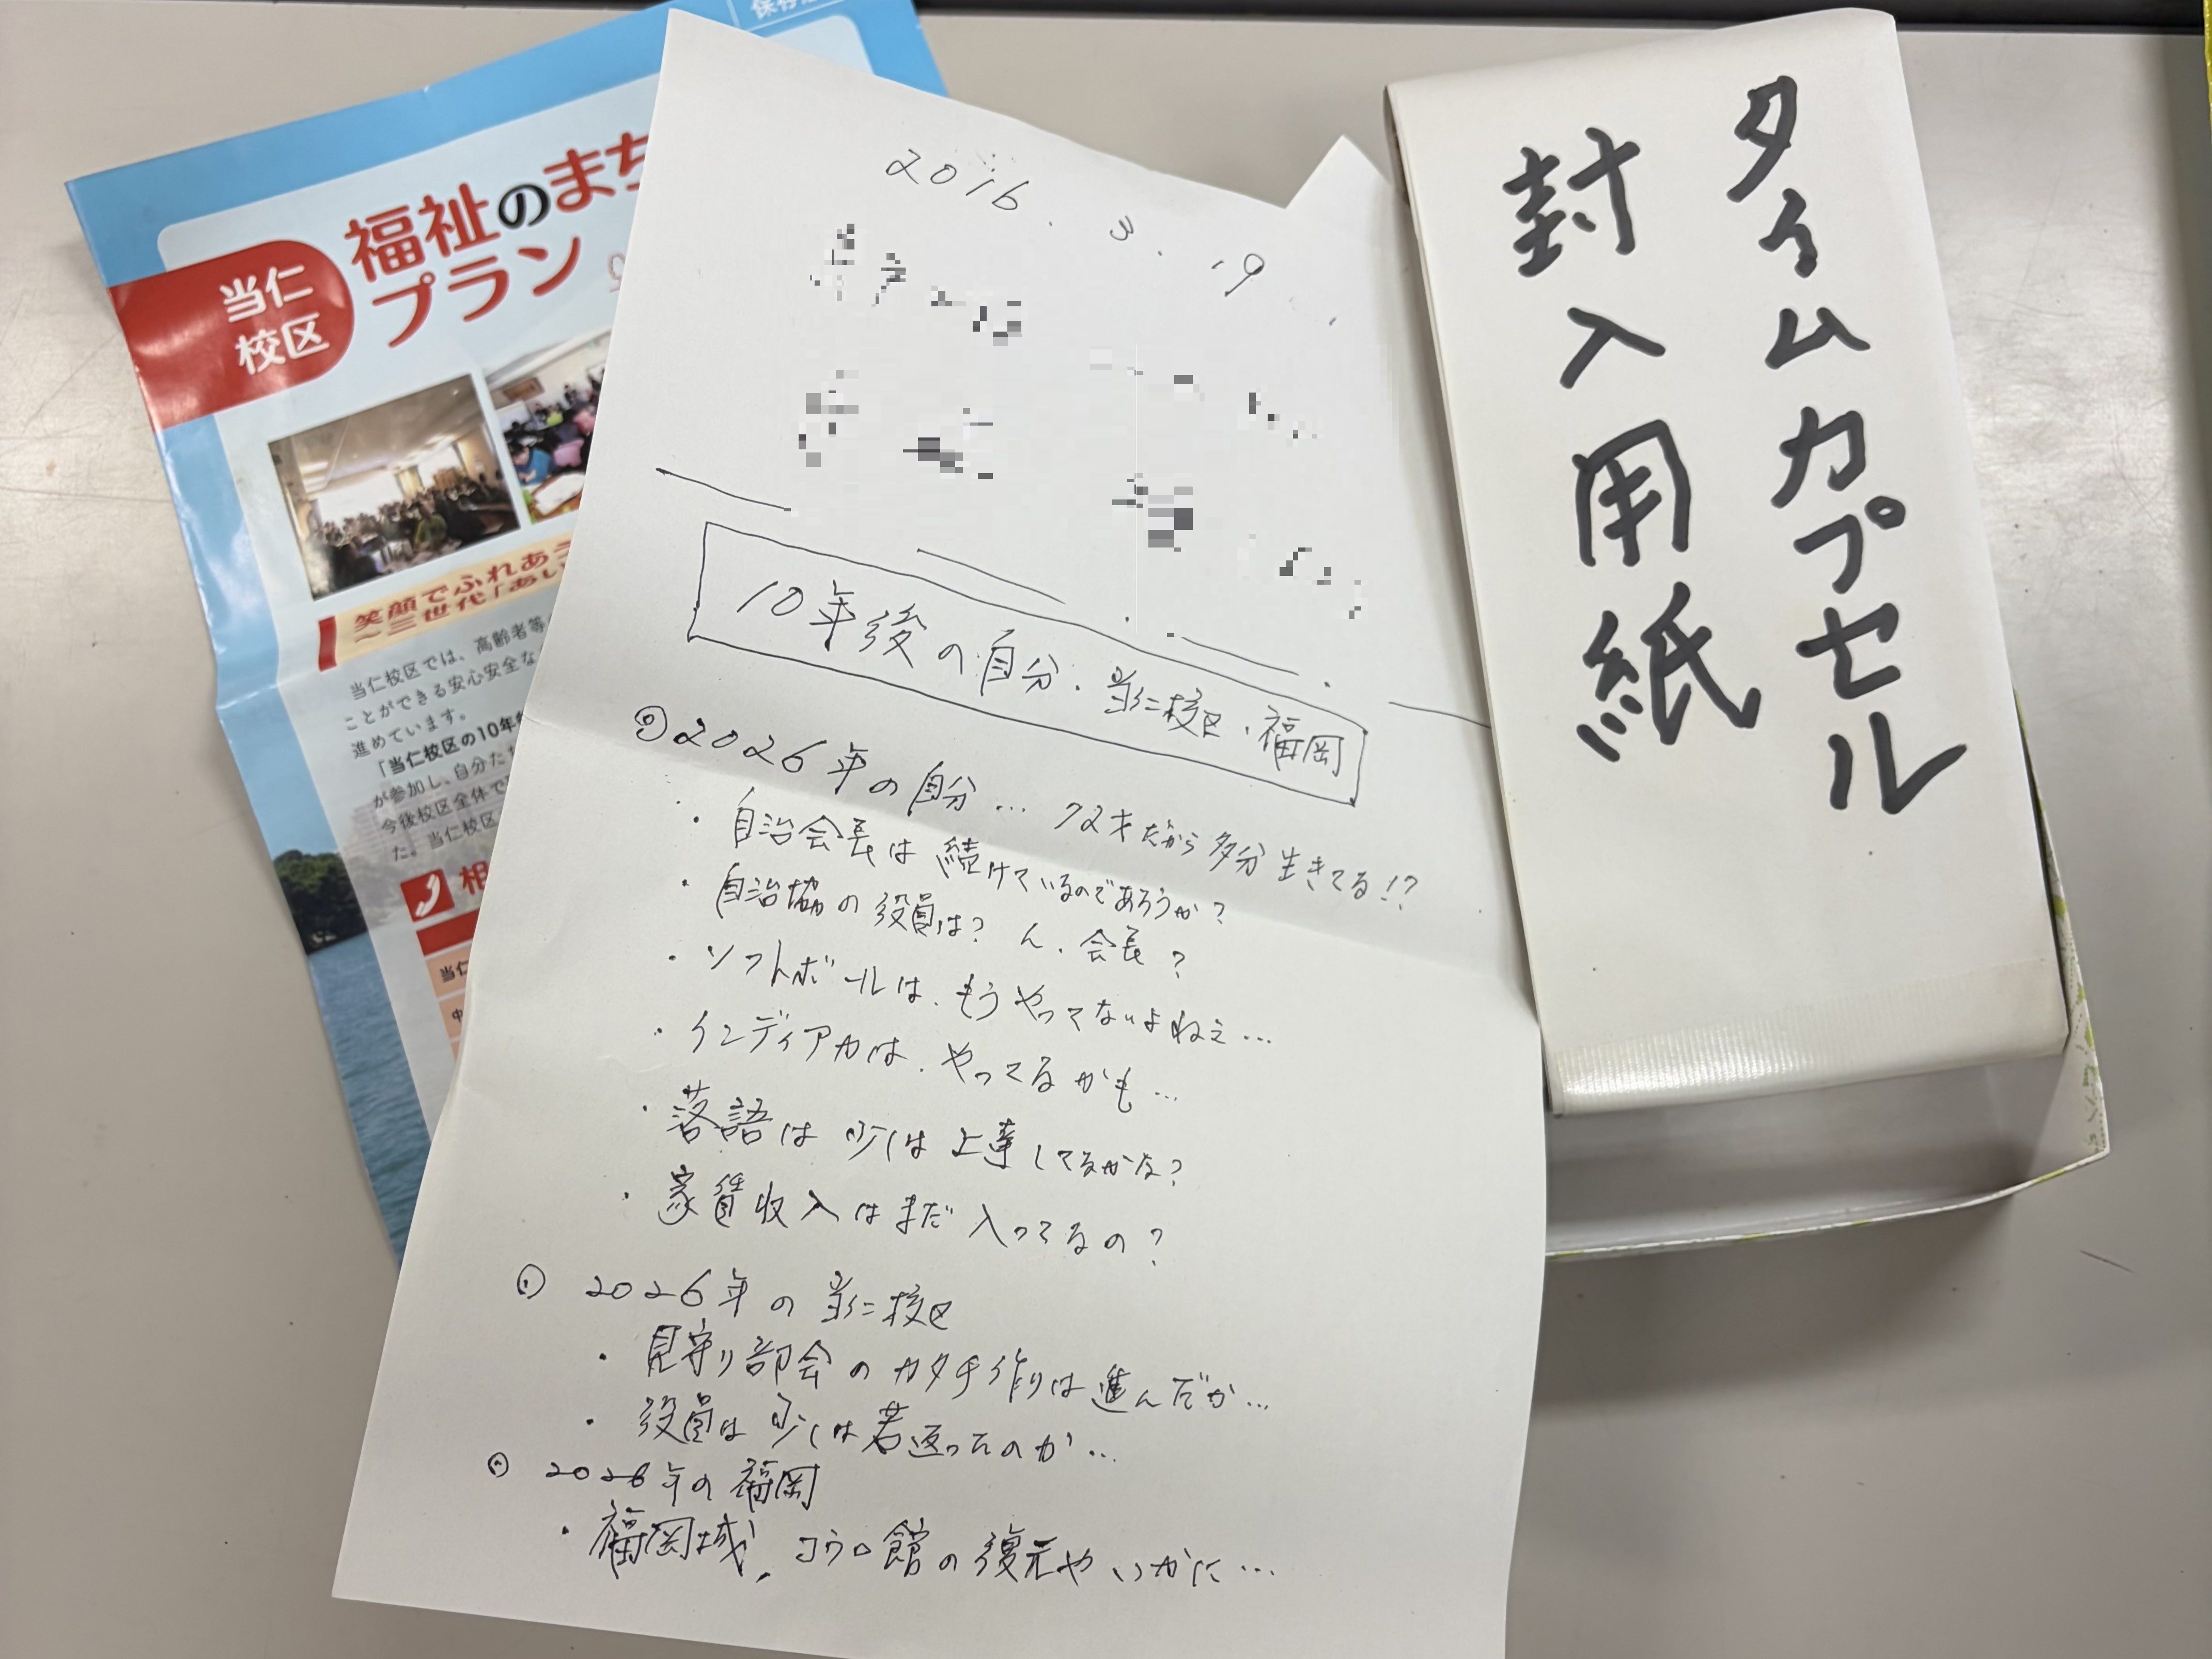 当仁
校区
福祉のまち
プラン
笑顔でふれあう
～三世代「あい
当仁校区では、高齢者等
ことができる安心安全な
進めています。
「当仁校区の10年
が参加し、自分た
今後校区全体で
た。当仁校区
相
当仁
中
2016.3.19
10年後の自分.当仁校区.福岡
2026年の自分… 72才だから多分生きてる!?
・自治会長は続けているのであろうか?
・自治協の役員は? ん、会長?
・ソフトボールは、もうやってないよねぇ…
・インディアカは、やってるかも…
・落語は少しは上達してるかな?
・家賃収入はまだ入ってるの?
2026年の当仁校区
・見守り部会のカタチ作りは進んだか…
・役員は少しは若返ったのか…
2026年の福岡
・福岡城、コウロ館の復元やいかに…
タイムカプセル
封入用紙